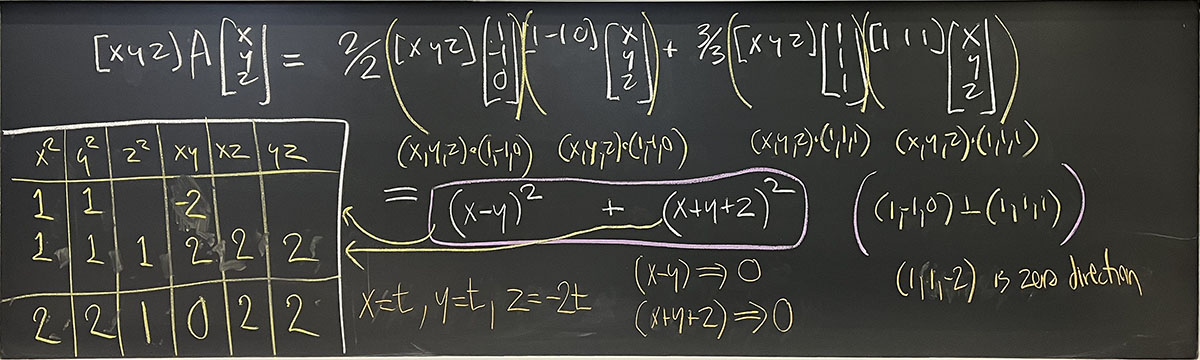 [x y z] A [x y z] = 2/2 ([x y z] [1 -1 0]) ([1 -1 0] [x y z]) + 3/3 ([x y z] [1 1 1]) ([1 1 1] [x y z])
(x,y,z)•(1,-1,0) (x,y,z)•(1,-1,0) (x,y,z)•(1,1,1) (x,y,z)•(1,1,1)
= (x-y)² + (x+y+z)² ((1,-1,0) ⊥ (1,1,1))
x² y² z² xy xz yz
1 1 -2
1 1 1 2 2 2
2 2 1 0 2 2
x=t, y=t, z=-2t
(x-y) ⇒ 0
(x+y+z) ⇒ 0
(1,1,-2) is zero direction